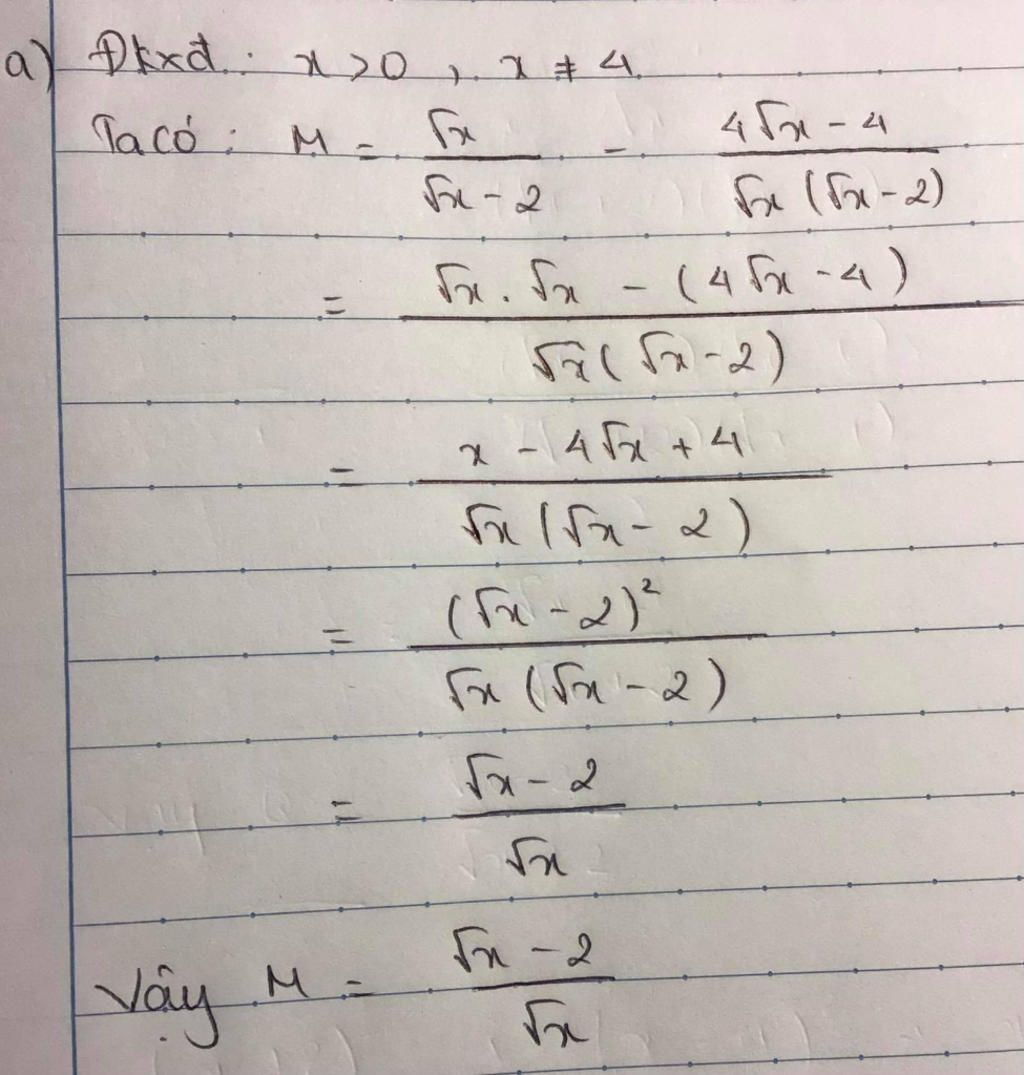 a) Đkxđ : x > 0 , x ≠ 4
Ta có : M = √x / (√x - 2) - (4√x - 4) / (√x (√x - 2))
= (√x . √x - (4√x - 4)) / (√x (√x - 2))
= (x - 4√x + 4) / (√x (√x - 2))
= (√x - 2)² / (√x (√x - 2))
= (√x - 2) / √x
Vậy M = (√x - 2) / √x